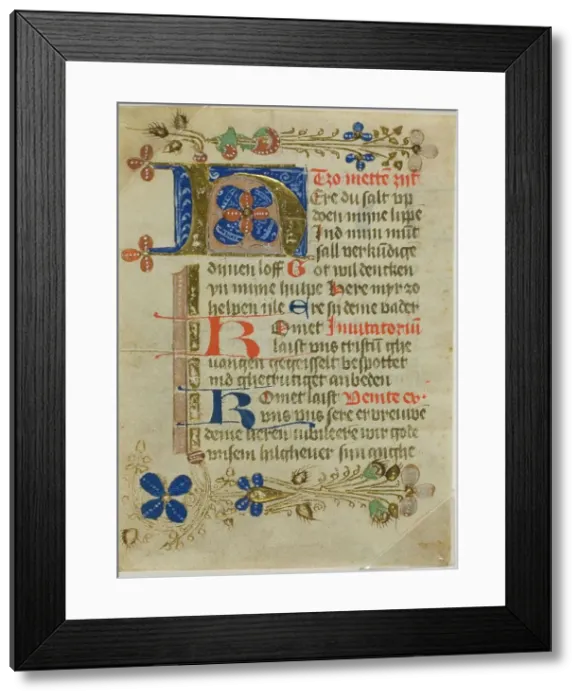 Tzo mettē zijt
HEre du salt vp
doen mijne lippe
Ind mijn mūt
sall verkūdige
dijnen loff Got wil dencken
yn mijne hulpe Here myr zo
helpen ile Ere sy deme vader
Komet Inuitatoriū
laist vns cristū ghe
uangen gegeisselt bespottet
ind ghecrutziget anbeden
Komet laist Venite ex
vns vns sere ervreuwē
deme heren iubileere wir gode
vnsem